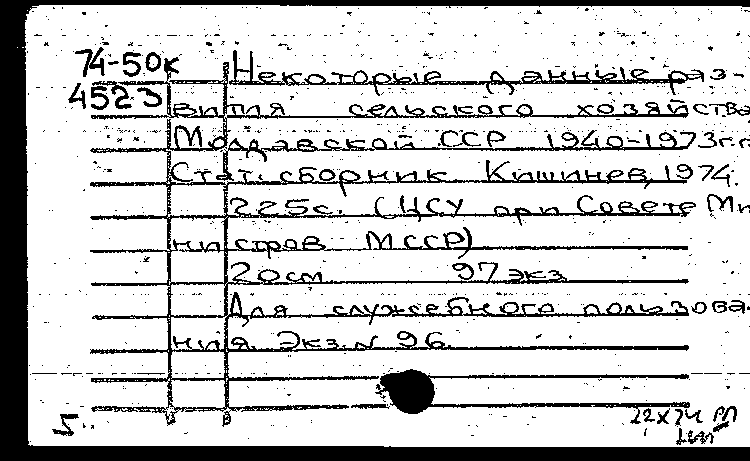 74-50к Некоторые данные раз-
4523 вития сельского хозяйства
Молдавской ССР 1940-1973г.г.
Стат. сборник. Кишинев, 1974.
225с. (ЦСУ при Совете Ми
нистров МССР)
20см 97 экз
Для служебного пользова-
ния. Экз. N 96.
5..